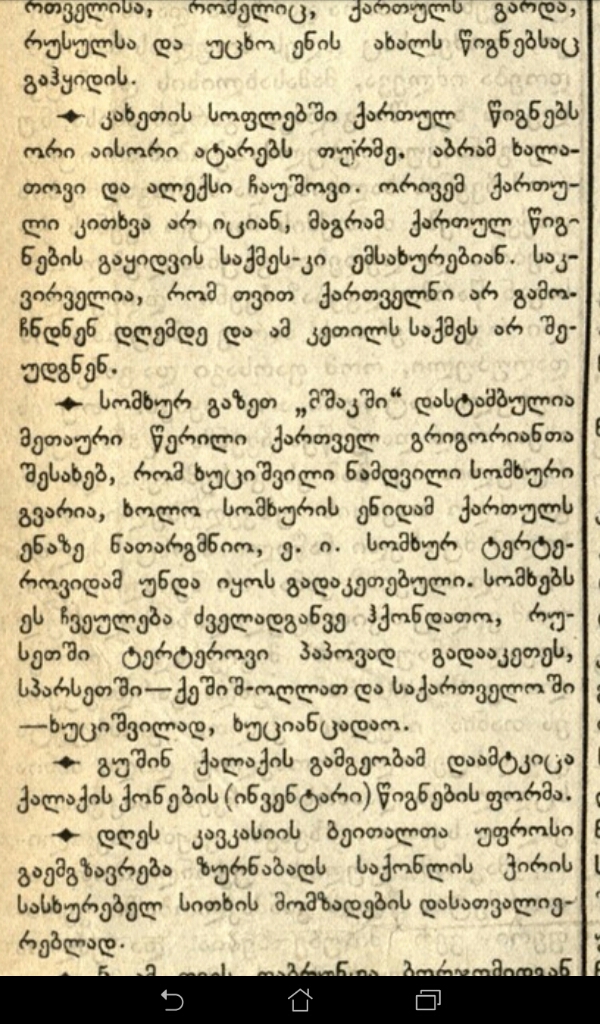 რთველისა, რომელიც, ქართულს გარდა,
რუსულსა და უცხო ენის ახალს წიგნებსაც
გაჰყიდის.
კახეთის სოფლებში ქართულ წიგნებს
ორი აისორი ატარებს თურმე. აბრამ ხალა-
თოვი და ალექსი ჩაუშოვი. ორივემ ქართუ-
ლი კითხვა არ იციან, მაგრამ ქართულ წიგ-
ნების გაყიდვის საქმეს-კი ემსახურებიან. საკ-
ვირველია, რომ თვით ქართველნი არ გამო-
ჩნდნენ დღემდე და ამ კეთილს საქმეს არ შე-
უდგნენ.
სომხურ გაზეთ „მშაკში“ დასტამბულია
მეთაური წერილი ქართველ გრიგორიანთა
შესახებ, რომ ხუციშვილი ნამდვილი სომხური
გვარია, ხოლო სომხურის ენიდამ ქართულს
ენაზე ნათარგმნიო, ე. ი. სომხურ ტერტე-
როვიდამ უნდა იყოს გადაკეთებული. სომხებს
ეს ჩვეულება ძველადგანვე ჰქონდათო, რუ-
სეთში ტერტეროვი პაპოვად გადააკეთეს,
სპარსეთში—ქეშიშ-ოღლათ და საქართველოში
—ხუციშვილად, ხუციანცადაო.
გუშინ ქალაქის გამგეობამ დაამტკიცა
ქალაქის ქონების (ინვენტარი) წიგნების ფორმა.
დღეს კავკასიის ბეითალთა უფროსი
გაემგზავრება ზურნაბადს საქონლის ჭირის
სასხურებელ სითხის მომზადების დასათვალიე-
რებლად.
ნ ამ თვის დაბრუნდა ბორჯომიდგან